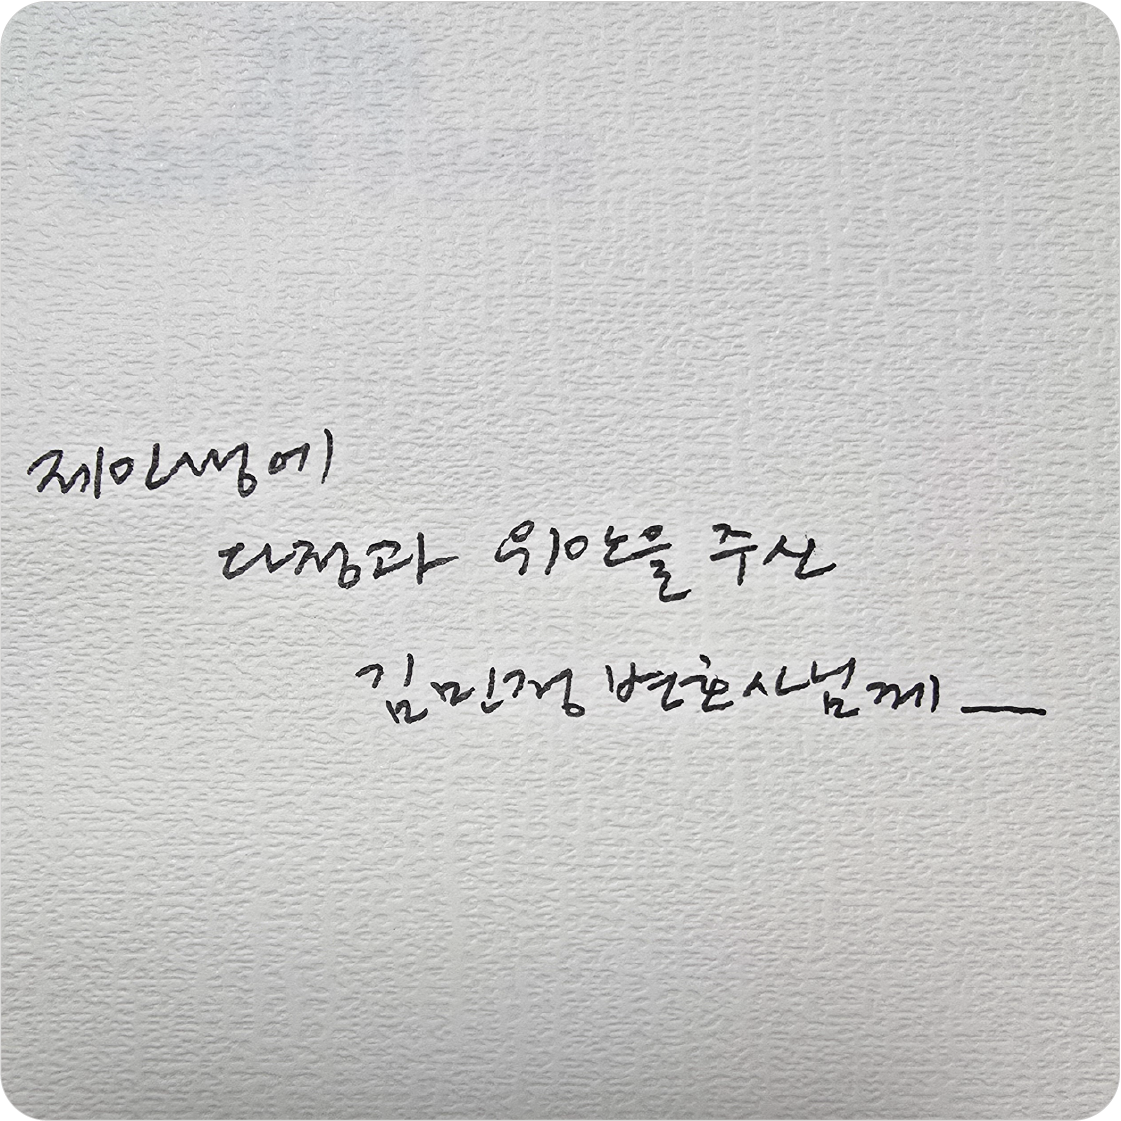 제 인생에
다정과 위안을 주신
김민정 변호사님께 —